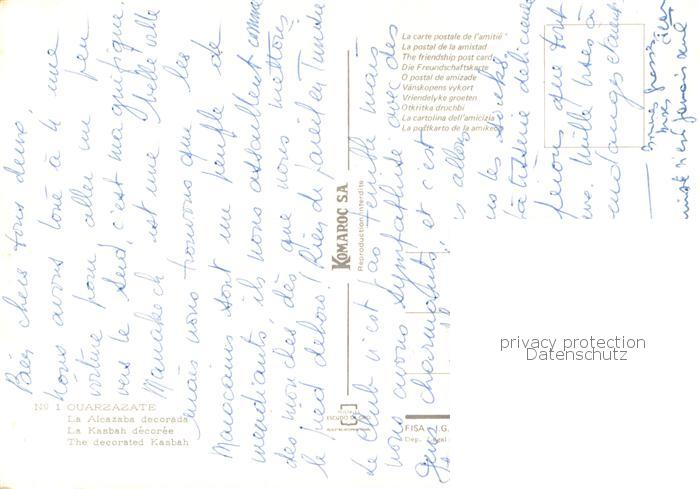 Bien chers tous deux,
nous avons loué à 4 une
voiture pour aller un peu
vers le Sud, c'est magnifique.
Marrakech est une belle ville
mais nous trouvons que les
Marocains sont un peuple de
mendiants, ils nous assaillent comme
des mouches, dès que nous mettons
le pied dehors! Rien de pareil en Tunisie
Le Club n'est pas terrible mais
nous avons sympathisé avec des
gens charmants, et c'est
s allons
us les souks
pâtisserie délicieuse
que tout
Mille bises à
La carte postale de l'amitié
La postal de la amistad
The friendship post card
Die Freundschaftskarte
O postal de amizade
Vänskopens vykort
Vriendelyke groeten
Otkritka druchbi
La cartolina dell'amicizia
La postkarto de la amikeco
KOMAROC S.A.
Reproduction interdite
Nº 1 OUARZAZATE
La Alcazaba decorada
La Kasbah décorée
The decorated Kasbah
ESCUDO DE ORO
FISA - I.G.
Dep. Legal
privacy protection
Datenschutz